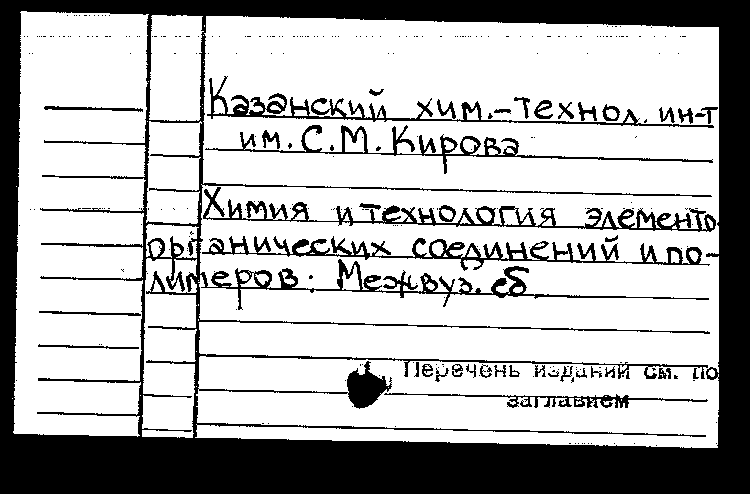 Казанский хим.-технол. ин-т
им. С.М. Кирова
Химия и технология элементо-
органических соединений и по-
лимеров: Межвуз. сб.
Перечень изданий см. по
заглавием